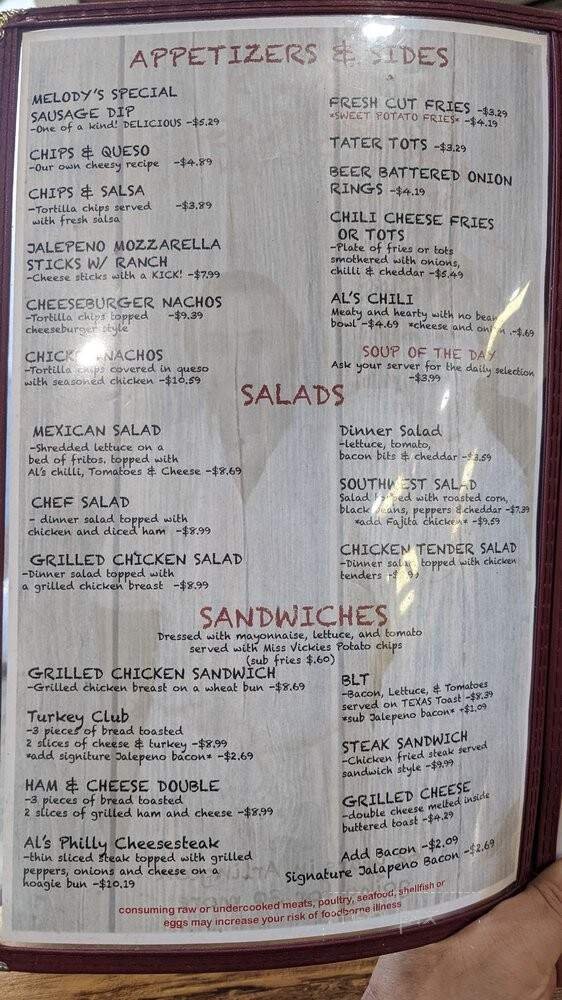 APPETIZERS & SIDES
MELODY'S SPECIAL
SAUSAGE DIP
-One of a kind! DELICIOUS -$5.29
CHIPS & QUESO
-Our own cheesy recipe -$4.89
CHIPS & SALSA
-Tortilla chips served -$3.89
with fresh salsa
JALEPENO MOZZARELLA
STICKS W/ RANCH
-Cheese sticks with a KICK! -$7.99
CHEESEBURGER NACHOS
-Tortilla chips topped -$9.39
cheeseburger style
CHICKEN NACHOS
-Tortilla chips covered in queso
with seasoned chicken -$10.59
FRESH CUT FRIES -$3.29
*SWEET POTATO FRIES* -$4.19
TATER TOTS -$3.29
BEER BATTERED ONION
RINGS -$4.19
CHILI CHEESE FRIES
OR TOTS
-Plate of fries or tots
smothered with onions,
chilli & cheddar -$5.49
AL'S CHILI
Meaty and hearty with no beans
bowl -$4.69 *cheese and onion .-$.69
SOUP OF THE DAY
Ask your server for the daily selection
-$3.99
SALADS
MEXICAN SALAD
-Shredded lettuce on a
bed of fritos, topped with
Al's chilli, Tomatoes & Cheese -$8.69
CHEF SALAD
- dinner salad topped with
chicken and diced ham -$8.99
GRILLED CHICKEN SALAD
-Dinner salad topped with
a grilled chicken breast -$8.99
Dinner Salad
-lettuce, tomato,
bacon bits & cheddar -$3.59
SOUTHWEST SALAD
Salad topped with roasted corn,
black beans, peppers &cheddar -$7.39
*add Fajita chicken* -$9.59
CHICKEN TENDER SALAD
-Dinner salad topped with chicken
tenders
SANDWICHES
Dressed with mayonnaise, lettuce, and tomato
served with Miss Vickies Potato chips
(sub fries $.60)
GRILLED CHICKEN SANDWICH
-Grilled chicken breast on a wheat bun -$8.69
Turkey Club
-3 pieces of bread toasted
2 slices of cheese & turkey -$8.99
*add signiture Jalepeno bacon* -$2.69
HAM & CHEESE DOUBLE
-3 pieces of bread toasted
2 slices of grilled ham and cheese -$8.99
Al's Philly Cheesesteak
-thin sliced steak topped with grilled
peppers, onions and cheese on a
hoagie bun -$10.19
BLT
-Bacon, Lettuce, & Tomatoes
served on TEXAS Toast -$8.39
*sub Jalepeno bacon* +$1.09
STEAK SANDWICH
-Chicken fried steak served
sandwich style -$9.99
GRILLED CHEESE
-double cheese melted inside
buttered toast -$4.29
Add Bacon -$2.09
Signature Jalapeno Bacon -$2.69
consuming raw or undercooked meats, poultry, seafood, shellfish or
eggs may increase your risk of foodborne illness